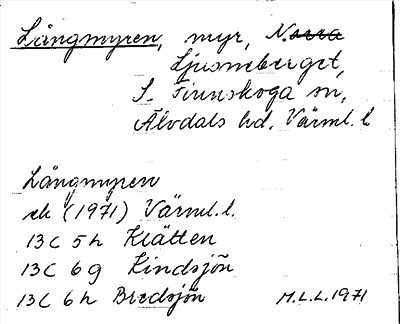 Långmyren, myr, Norra
Ljusneberget,
S. Finnskoga sn,
Älvdals hd. Värml. l
Långmyren
ek (1971) Värml. l.
13C 5h Klätten
13C 6g Kindsjön
13C 6h Bredsjön M.L.L. 1971